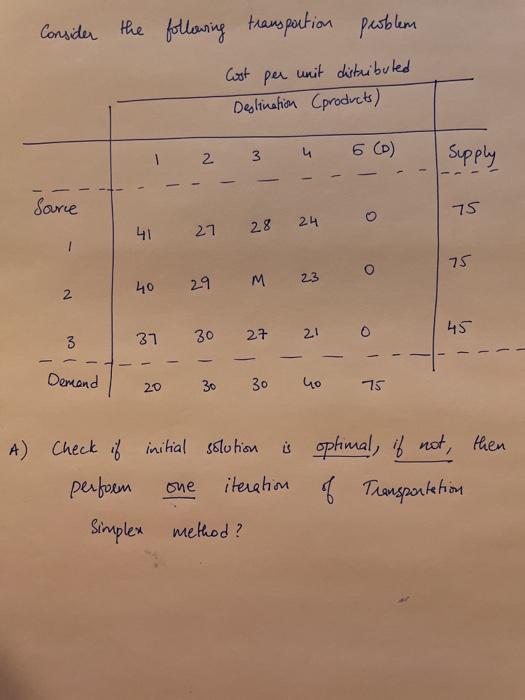 Consider the following transportion problem
Cost per unit distributed
Destination (products)
1 2 3 4 5 (D) Supply
Source
1 41 27 28 24 0 75
2 40 29 M 23 0 75
3 37 30 27 21 0 45
Demand 20 30 30 40 75
A) Check if initial solution is optimal, if not, then
perform one iteration of Transportation
Simplex method?